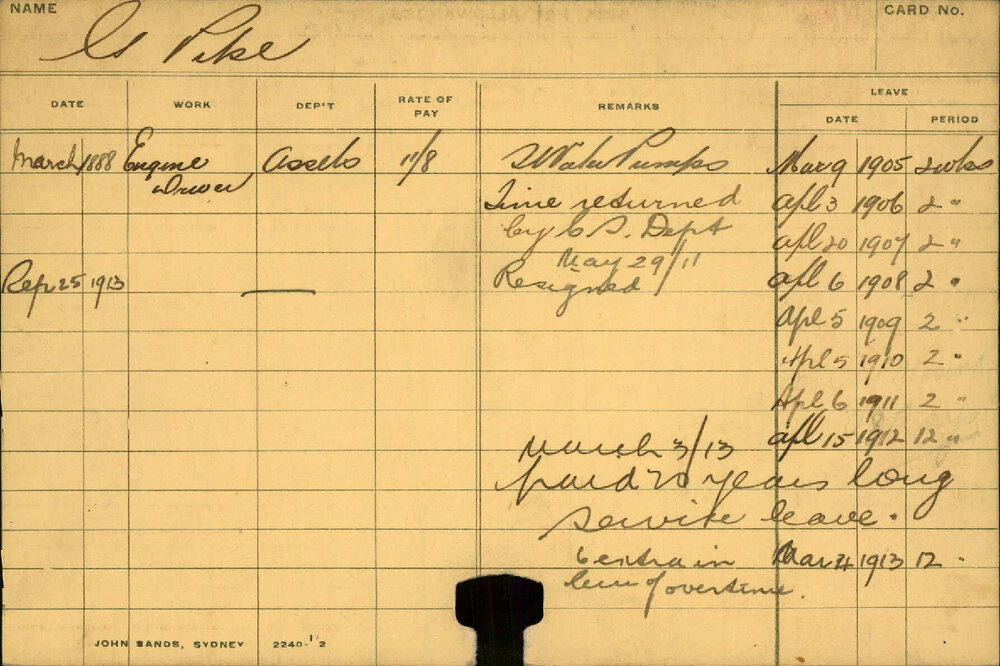 NAME
Pike
CARD No.
DATE WORK DEP'T RATE OF PAY REMARKS LEAVE
DATE PERIOD
March/1888 Engine Assets 11/8 Water Pumps Mar 9 1905 2 wks
Driver
Time returned Apl 3 1906 2 "
by C S. Dept Apl 20 1907 2 "
May 29/11
Sep 25 1913 — Resigned Apl 6 1908 2 "
Apl 5 1909 2 "
Apl 5 1910 2 "
Apl 6 1911 2 "
March 3/13 Apl 15 1912 12 "
paid 20 years long
service leave.
6 extra in Mar 4 1913 12 "
lieu of overtime.
JOHN SANDS, SYDNEY 2240-1/2